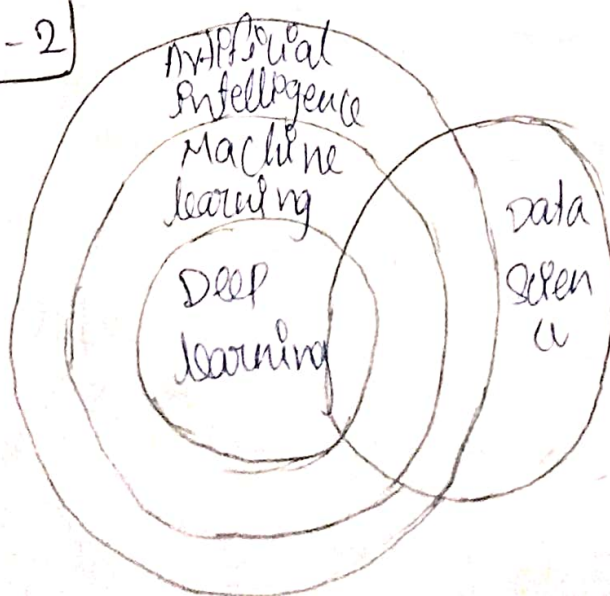 -2
Artificial
Intelligence
Machine
learning
Deep
learning
Data
Scien
ce